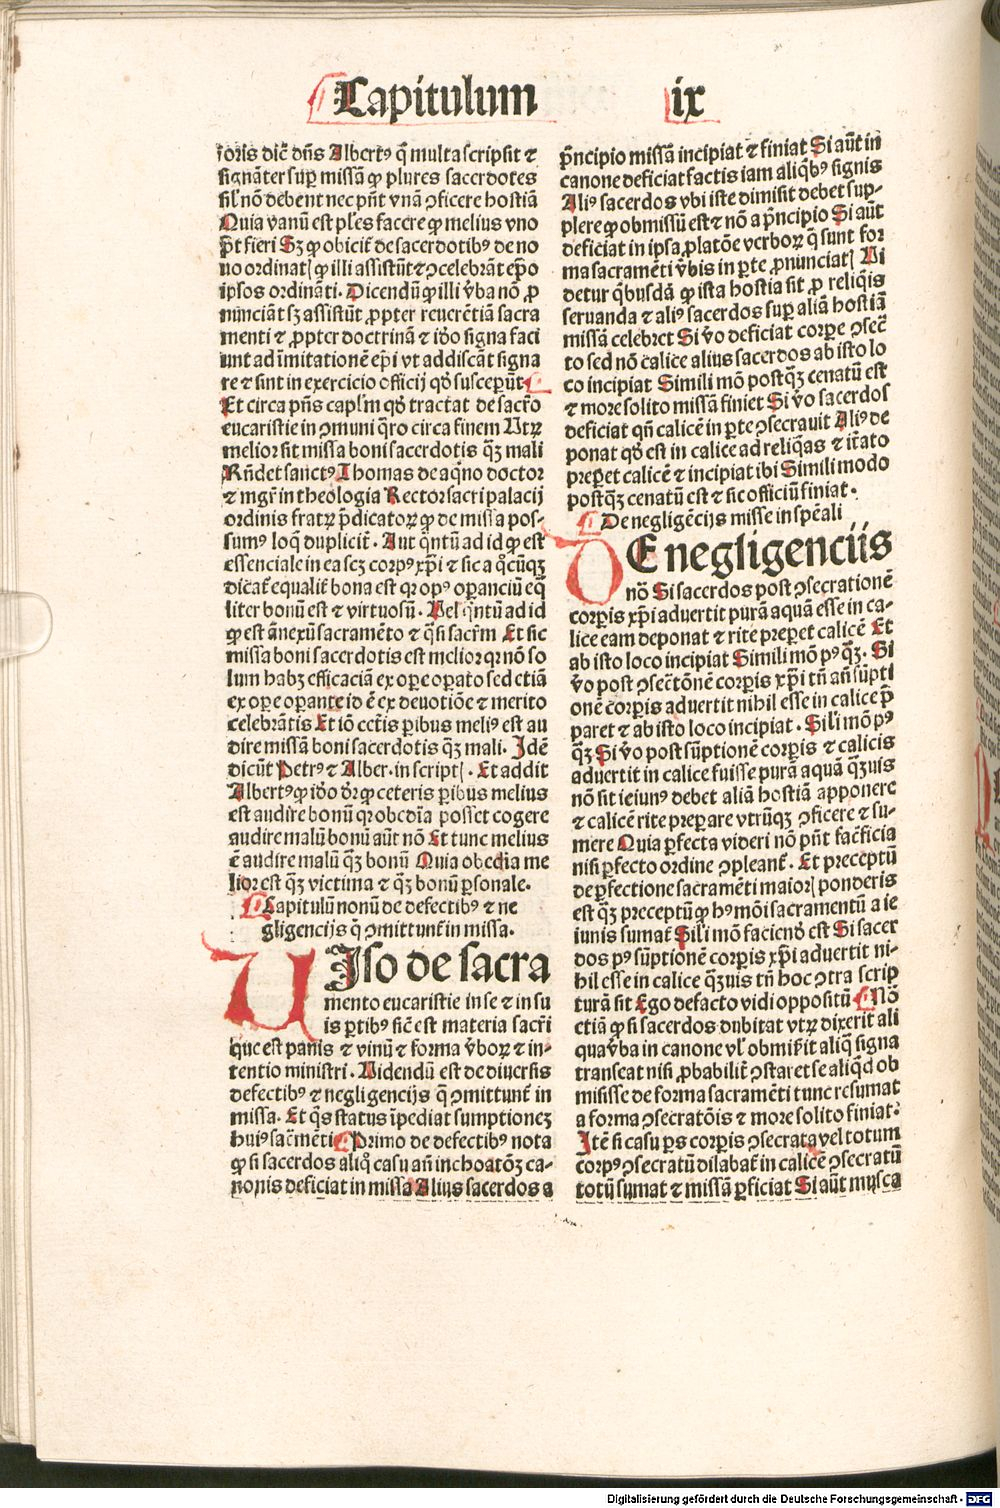 Capitulum ix
ioris dic̄ dn̄s Albertꝰ q̄ multa scripsit ⁊
signāter suꝑ missā ꝙ plures sacerdotes
sil̄ nō debent nec pn̄t vnā ꝯficere hostiā
Quia vanū est ꝑ ples facere ꝙ melius vno
pt̄ fieri Sꝫ ꝙ obicit̄ de sacerdotibꝰ de no
uo ordinatꝭ ꝙ illi assistūt ⁊ ꝯcelebrāt ep̄o
ipsos ordināti. Dicendū ꝙ illi v̄ba nō ꝓ
nūnciāt sꝫ assistūt ꝓpter reuerētiā sacra
menti ⁊ ꝓpter doctrinā ⁊ iḋo signa faci
unt ad īmitationē ep̄i vt addiscāt signa
re ⁊ sint in exercicio officij qḋ susceperūt
Et circa pn̄s caplm̄ qḋ tractat de sacr̄o
eucaristie in ꝯmuni q̄ro circa finem Utꝝ
melior sit missa boni sacerdotis qꝫ mali
Rn̄det sanctꝰ Thomas de aq̄no doctor
⁊ mgr̄ in theologia Rector sacri palacij
ordinis fratꝝ p̄dicatoꝝ ꝙ de missa pos-
sumꝰ loq̄ duplicit̄. Aut q̄ntū ad id ꝙ est
essenciale in ea scꝫ corpꝰ xp̄i ⁊ sic a q̄cūqꝫ
dicat̄ equalit̄ bona est qꝛ opꝰ operanciū eq̄
liter bonū est ⁊ virtuosū. Vel q̄ntū ad id
ꝙ est ānexū sacramēto ⁊ q̄si sacrm̄ Et sic
missa boni sacerdotis est melior qꝛ nō so
lum habꝫ efficaciā ex opere operato sed etiā
ex opere operante id ē ex deuotiōe ⁊ merito
celebrātis Et iō cet̄is paribus meliꝰ est au
dire missā boni sacerdotis qꝫ mali. Idē
dicūt Petrꝰ ⁊ Alber. in scriptꝭ. Et addit
Albertꝰ ꝙ iḋo dr̄ ꝙ ceteris paribus melius
est audire bonū qꝛ obedīa posset cogere
audire malū bonū aūt nō Et tunc melius
ē audire malū qꝫ bonū Quia obedia me
lior est qꝫ victima ⁊ qꝫ bonū ꝑsonale.
Capitulū nonū de defectibꝰ ⁊ ne
gligencijs q̄ ꝯmittunt̄ in missa.
VIso de sacra
mento eucaristie in se ⁊ in su
is partibꝰ sic̄ est materia sacr̄i
que est panis ⁊ vinū ⁊ forma v̄boꝝ ⁊ in-
tentio ministri. Videndū est de diuersis
defectibꝰ ⁊ negligencijs q̄ ꝯmittunt̄ in
missa. Et q̄s status īpediat sumptionez
huiꝰ sacmēti Primo de defectibꝰ nota
ꝙ si sacerdos aliq̊ casu an̄ inchoatōꝫ ca-
nonis deficiat in missa Alius sacerdos a
p̄ncipio missā incipiat ⁊ finiat Si aūt in
canone deficiat factis iam aliq̄bꝰ signis
Aliꝰ sacerdos vbi iste dimisit debet sup-
plere ꝙ obmissū est ⁊ nō a p̄ncipio Si aūt
deficiat in ipsa ꝓlatōe verboꝝ q̄ sunt for
ma sacramēti v̄bis in ꝑte ꝓnunciatꝭ Vi
detur q̄busdā ꝙ ista hostia sit ꝓ reliq̄is
seruanda ⁊ aliꝰ sacerdos suꝑ aliā hostiā
missā celebret Si v̄o deficiat corpe ꝯsec̄
to sed nō calice alius sacerdos ab isto lo
co incipiat Simili mō postqꝫ cenatū est
⁊ more solito missā finiet Si v̄o sacerdos
deficiat qn̄ calicē in ꝑte ꝯsecrauit Aliꝰ de
ponat qḋ est in calice ad reliq̄as ⁊ it̄ato
preperet calicē ⁊ incipiat ibi Simili modo
postqꝫ cenatū est ⁊ sic officiū finiat.
De negligēcijs misse in spēali
DE negligenciis
nō Si sacerdos post ꝯsecrationē
corpis xp̄i aduertit purā aquā esse in ca-
lice eam deponat ⁊ rite preperet calicē Et
ab isto loco incipiat Simili mō pꝰ qꝫ. Si
v̄o post ꝯsec̄tōnē corpis xp̄i tn̄ an̄ supti
onē corpis aduertit nihil esse in calice p̄
paret ⁊ ab isto loco incipiat. Sil̄i mō pꝰ
qꝫ Si v̄o post sūptionē corpis ⁊ calicis
aduertit in calice fuisse purā aquā qꝫuis
nō sit ieiunꝰ debet aliā hostiā apponere
⁊ calicē rite preperare vtrūqꝫ ꝯficere ⁊ su-
mere Quia ꝑfecta videri nō pn̄t fac̄ficia
nisi ꝑfecto ordine ꝯpleant̄. Et preceptū
de ꝑfectione sacramēti maiorꝭ ponderis
est qꝫ preceptū ꝙ hꝰmōi sacramentū a ie
iunis sumat̄ Sil̄i mō faciendꝰ est Si sacer
dos pꝰ sūptionē corpis xp̄i aduertit ni-
hil esse in calice qꝫuis tn̄ hoc ꝯtra scrip
turā sit Ego defacto vidi oppositū Nō
etiā ꝙ si sacerdos dubitat vtꝝ dixerit ali
qua v̄ba in canone vl̄ obmis̄it aliq̄ signa
transeat nisi ꝓbabilit̄ ꝯstaret se aliq̄d ob
misisse de forma sacramēti tunc resumat
a forma ꝯsecratōis ⁊ more solito finiat:
Itē si casu ꝑs corpis ꝯsecrata vel totum
corpꝰ ꝯsecratū dilabat̄ in calicē ꝯsecratū
totū sumat ⁊ missā ꝑficiat Si aūt musca
Digitalisierung gefördert durch die Deutsche Forschungsgemeinschaft - DFG